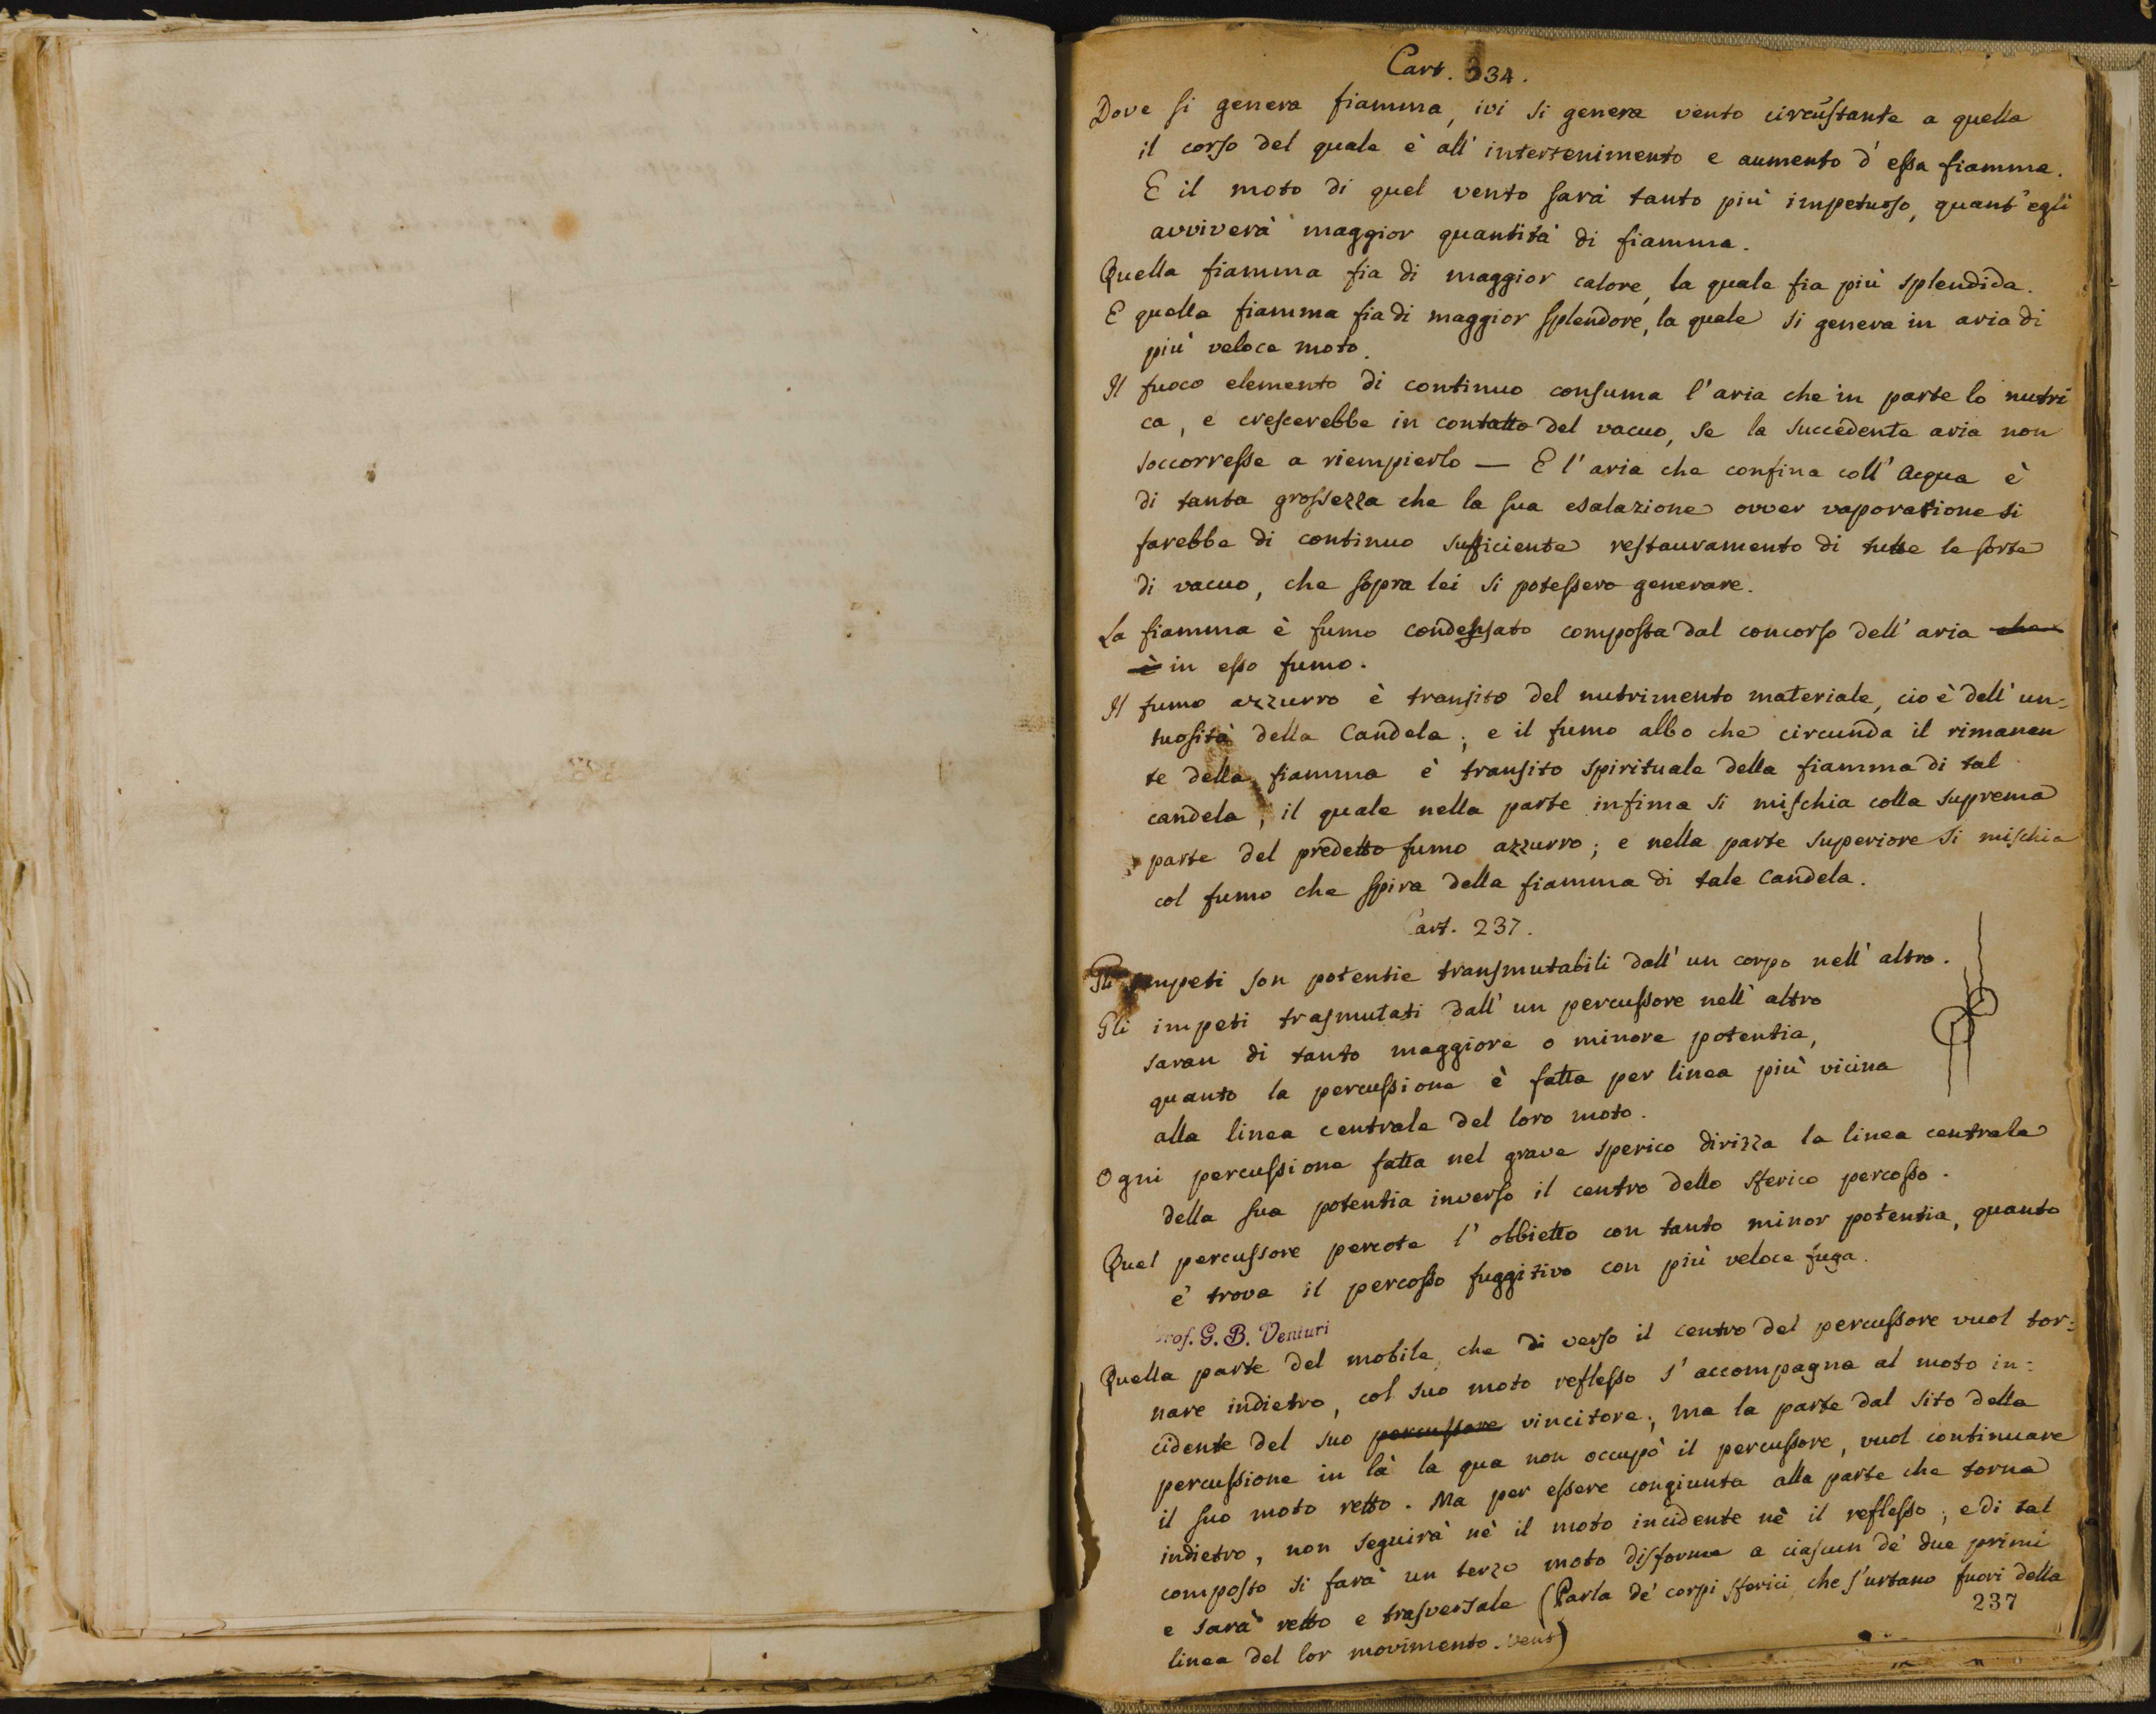 Cart. 334.
Dove si genera fiamma, ivi si genera vento circustante a quella
il corso del quale è all' intertenimento e aumento d' essa fiamma.
E il moto di quel vento sarà tanto più impetuoso, quant' egli
avviverà maggior quantità di fiamma.
Quella fiamma fia di maggior calore, la quale fia più splendida.
E quella fiamma fia di maggior splendore, la quale si genera in aria di
più veloce moto.
Il fuoco elemento di continuo consuma l' aria che in parte lo nutri
ca, e crescerebbe in contatto del vacuo, se la succedente aria non
soccorresse a riempierlo — E l' aria che confina coll' Acqua è
di tanta grossezza che la sua esalazione ovver vaporatione si
farebbe di continuo sufficiente restauramento di tutte le sorte
di vacuo, che sopra lei si potessero generare.
La fiamma è fumo condensato composta dal concorso dell' aria che
è in esso fumo.
Il fumo azzurro è transito del nutrimento materiale, cio è dell' un=
tuosità della Candela; e il fumo albo che circunda il rimanen
te della fiamma è transito spirituale della fiamma di tal
candela, il quale nella parte infima si mischia colla suprema
parte del predetto fumo azzurro; e nella parte superiore si mischia
col fumo che spira della fiamma di tale Candela.
Cart. 237.
Gli impeti son potentie transmutabili dall' un corpo nell' altro.
Gli impeti trasmutati dall' un percussore nell' altro
saran di tanto maggiore o minore potentia,
quanto la percussione è fatta per linea più vicina
alla linea centrale del loro moto.
Ogni percussione fatta nel grave sperico dirizza la linea centrale
della sua potentia inverso il centro dello sferico percosso.
Quel percussore percote l' obbietto con tanto minor potentia, quanto
e' trova il percosso fuggitivo con più veloce fuga.
Prof. G. B. Venturi
Quella parte del mobile, che di verso il centro del percussore vuol tor=
nare indietro, col suo moto reflesso s' accompagna al moto in=
cidente del suo percussore vincitore; ma la parte dal sito della
percussione in là la qua non occupò il percussore, vuol continuare
il suo moto retto. Ma per essere congiunta alla parte che torna
indietro, non seguirà nè il moto incidente nè il reflesso; e di tal
composto si farà un terzo moto disforme a ciascun de' due primi
e sarà retto e trasversale (Parla de' corpi sferici che s' urtano fuori della
linea del lor movimento. Vent)
237